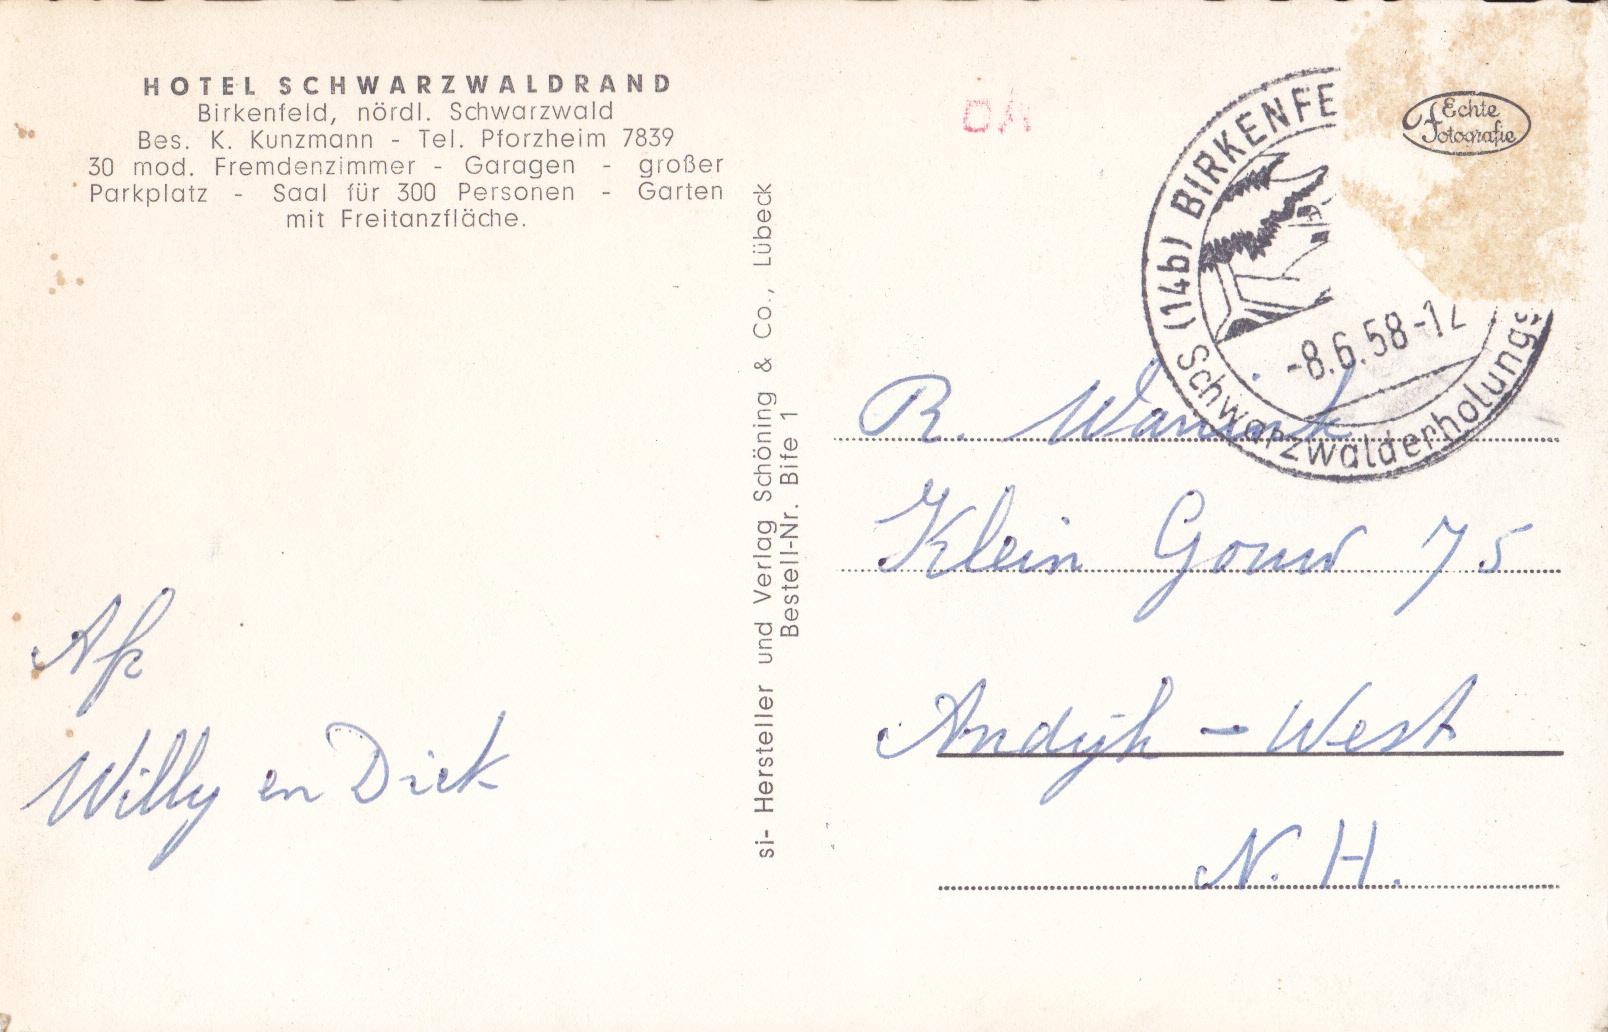 HOTEL SCHWARZWALDRAND
Birkenfeld, nördl. Schwarzwald
Bes. K. Kunzmann - Tel. Pforzheim 7839
30 mod. Fremdenzimmer - Garagen - großer
Parkplatz - Saal für 300 Personen - Garten
mit Freitanzfläche.
Willy en Dick
si- Hersteller und Verlag Schöning & Co., Lübeck
Bestell-Nr. Bife 1
Echte
Fotografie
(14b) BIRKENFE
-8.6.58-12
Schwarzwalderholungs
R. Warink
Klein Gouw 75
Andijk - West
N. H.